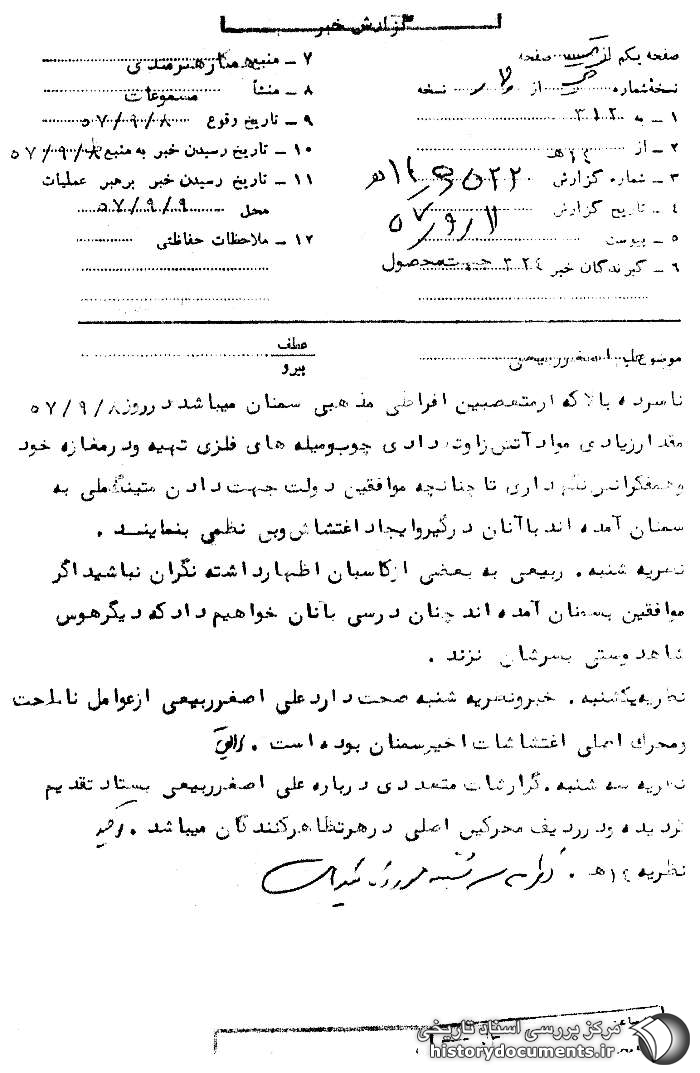 گزارش خبر
صفحه یکم از یک صفحه
نسخه شماره از نسخه
۱ ـ به ۳۱۲
۲ ـ از ۱۲هـ
۳ ـ شماره گزارش ۵۲۲۰/۱۲هـ
۴ ـ تاریخ گزارش ۵۷/۹/۱۱
۵ ـ پیوست
۶ ـ گیرندگان خبر ۳۲۴ جهت محصول
۷ ـ منبع
۸ ـ منشأ مسموعات
۹ ـ تاریخ وقوع ۵۷/۹/۸
۱۰ ـ تاریخ رسیدن خبر به منبع ۵۷/۹/۸
۱۱ ـ تاریخ رسیدن خبر برهبر عملیات
محل ۵۷/۹/۹
۱۲ ـ ملاحظات حفاظتی
موضوع علی اصغر ربیعی
عطف
پیرو
نامبرده بالا که از متعصبین افراطی مذهبی سمنان میباشد در روز ۵۷/۹/۸
مقدار زیادی مواد آتش‌زا و تعدادی چوب و میله های فلزی تهیه و در مغازه خود
و همفکرانش نگهداری تا چنانچه موافقین دولت جهت دادن متینگ ملی به
سمنان آمده اند با آنان درگیر و ایجاد اغتشاش و بی نظمی بنمایند .
نظریه شنبه . ربیعی به بعضی از کاسبان اظهار داشته نگران نباشید اگر
موافقین بسمنان آمده اند چنان درسی بآنان خواهیم داد که دیگر هوس
شاهدوستی بسرشان نزند .
نظریه یکشنبه . خبر و نظریه شنبه صحت دارد علی اصغر ربیعی از عوامل ناراحت
و محرک اصلی اغتشاشات اخیر سمنان بوده است .
نظریه سه شنبه . گزارشات متعددی درباره علی اصغر ربیعی بستاد تقدیم
گردیده و در ردیف محرکین اصلی در هر تظاهر کنندگان میباشد .
نظریه ۱۲هـ . نظریه سه شنبه
مرکز بررسی اسناد تاریخی
historydocuments.ir